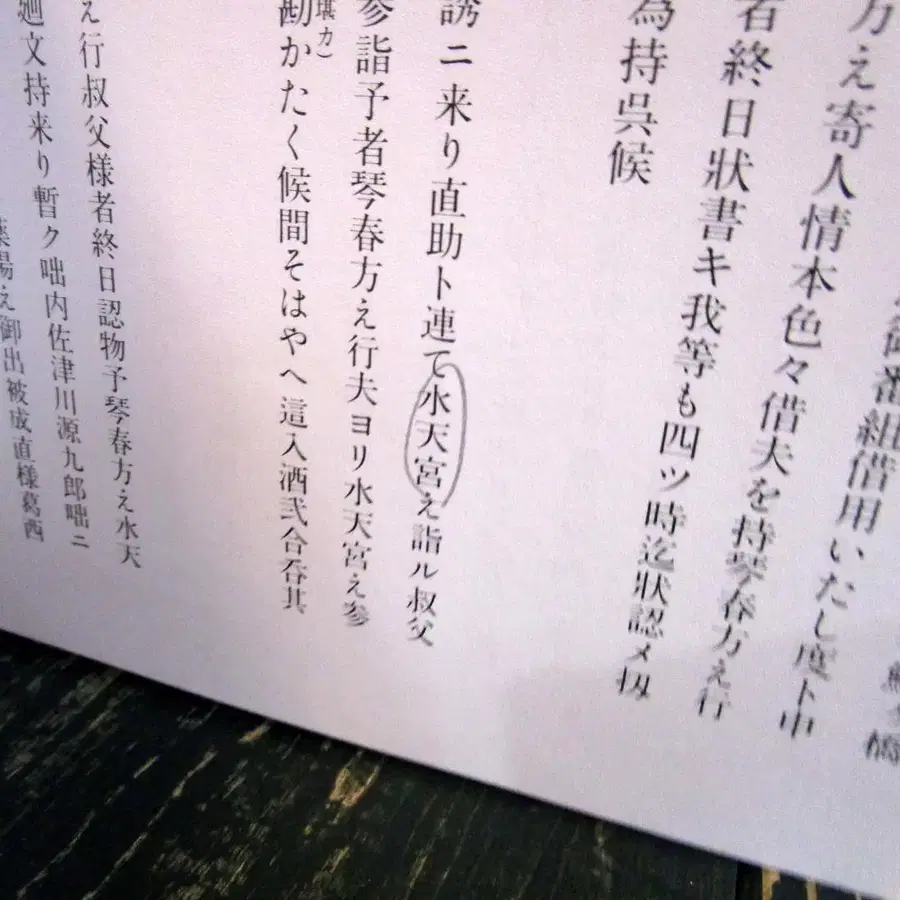 御番組借用いたし度ト申
方え寄人情本色々借夫を持琴春方え行
者終日狀書キ我等も四ツ時迄狀認メ扨
為持呉候
誘ニ来り直助ト連て水天宮え詣ル叔父
参詣予者琴春方え行夫ヨリ水天宮え参
堪カ）
勘かたく候間そはやへ這入酒弐合呑其
え行叔父様者終日認物予琴春方え水天
廻文持来り暫ク咄内佐津川源九郎咄ニ
薬湯え御出被成直様葛西